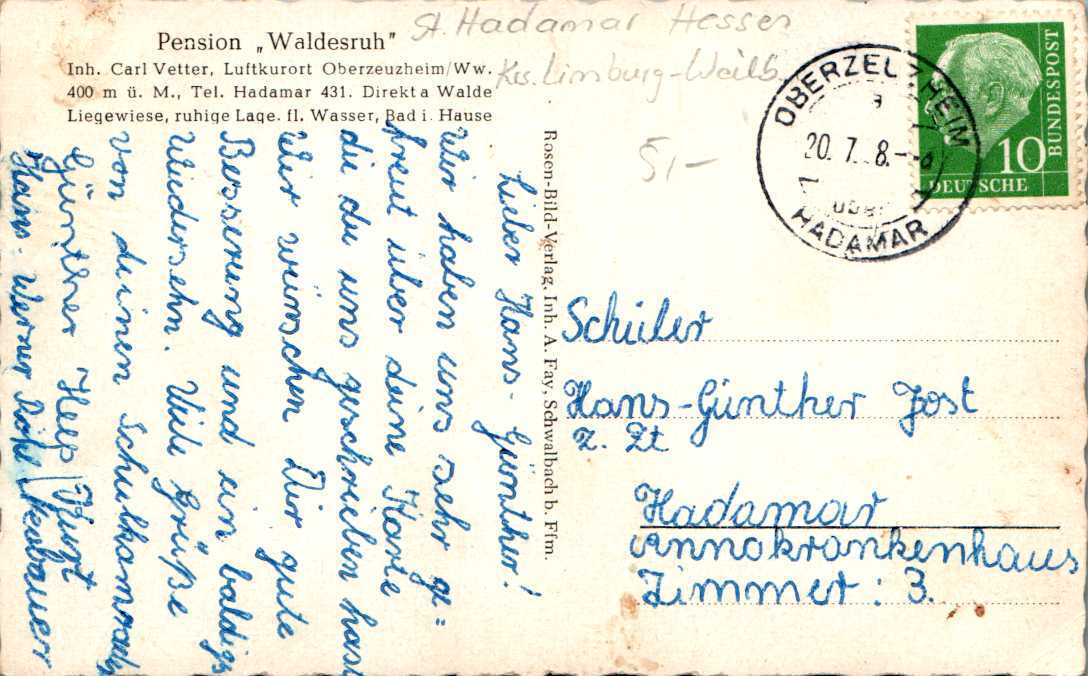 Pension „Waldesruh"
Inh. Carl Vetter, Luftkurort Oberzeuzheim/Ww.
400 m ü. M., Tel. Hadamar 431. Direkt a Walde
Liegewiese, ruhige Lage. fl. Wasser, Bad i. Hause
St. Hadamar Hessen
Krs. Limburg-Weilb.
5,-
OBERZEUZHEIM
20. 7. 8.-
über
HADAMAR
10
DEUTSCHE
BUNDESPOST
Lieber Hans-Günther!
Wir haben uns sehr ge=
freut über deine Karte
die du uns geschrieben hast
Wir wünschen Dir gute
Besserung und ein baldiges
Wiedersehn. Viele Grüße
von deinen Schulkameraden
Günther Help Kurt
Hans-Werner Neubauer
Rosen-Bild-Verlag, Inh. A. Fay, Schwalbach b. Ffm.
Schüler
Hans-Günther Jost
z. Zt
Hadamar
Annakrankenhaus
Zimmer: 3.